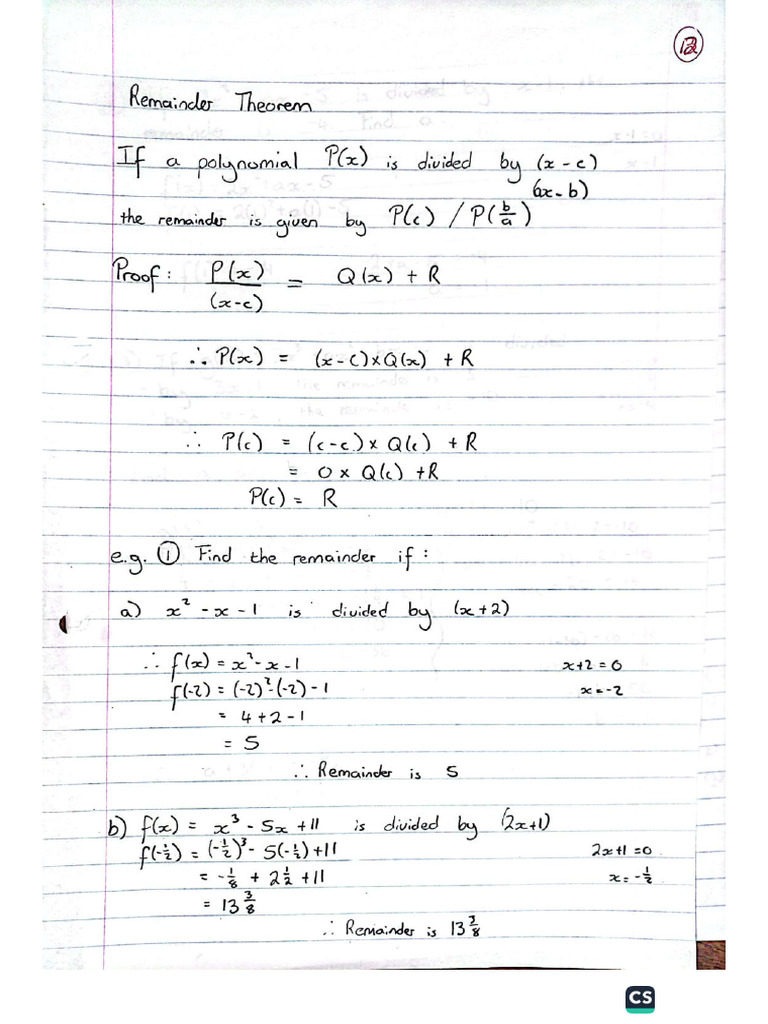 12
Remainder Theorem
If a polynomial P(x) is divided by (x - c)
(ax - b)
the remainder is given by P(c) / P(b/a)
Proof: P(x)/(x-c) = Q(x) + R
∴ P(x) = (x-c)×Q(x) + R
∴ P(c) = (c-c)× Q(c) + R
= 0 × Q(c) + R
P(c) = R
e.g. ① Find the remainder if :
a) x² - x - 1 is divided by (x+2)
∴ f(x) = x² - x - 1 x+2 = 0
f(-2) = (-2)² - (-2) - 1 x = -2
= 4 + 2 - 1
= 5
∴ Remainder is 5
b) f(x) = x³ - 5x + 11 is divided by (2x+1)
f(-1/2) = (-1/2)³ - 5(-1/2) + 11 2x+1 = 0
= -1/8 + 2 1/2 + 11 x = -1/2
= 13 3/8
∴ Remainder is 13 3/8
CS